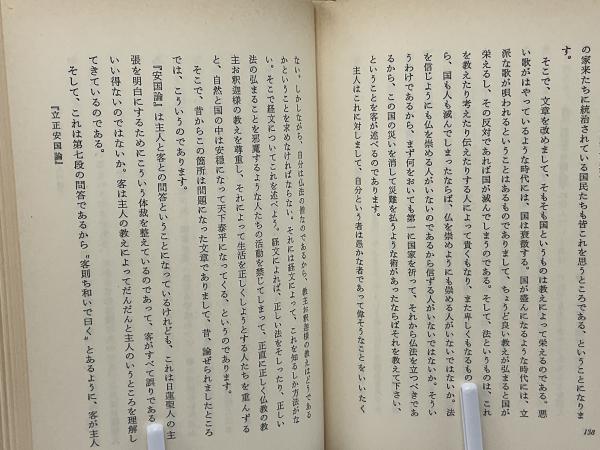 の家来たちに統治されている国民たちも皆これを思うところである、ということになりま
す。
そこで、文章を改めまして、そもそも国というものは教えによって栄えるのである。悪
い歌がはやっているような時代には、国は衰微する。国が盛んになるような時代には、立
派な歌が唄われるということはあるものでありまして、ちょうど良い教えが弘まると国が
栄えるし、その反対であれば国が滅んでしまうのである。そして、法というものは、これ
を教えたり考えたり伝えたりする人によって貴くもなり、また卑しくもなるもの
ら、国も人も滅んでしまったならば、仏を崇めようにも崇める人がいないではないか。法
を信じようにも仏を崇める人がいないのであるから信ずる人がいないではないか。そうい
うわけであるから、まず何をおいても第一に国家を祈って、それから仏法を立つべきであ
るから、この国の災いを消して災難を払うような術があったならばそれを教えて下さい、
ということを客が述べるのであります。
主人はこれに対しまして、自分という者は愚かな者であって偉そうなことをいいたく
138
ない。しかしながら、自分は仏法の僧なのであるから、教主お釈迦様の教えはどうである
かということを求めなければならない。それには経文によって、これを知るしか方法がな
い。そこで経文についてこれを述べよう。経文によれば、正しい法をそしったり、正しい
法の弘まることを邪魔するような人たちの活動を禁じてしまって、正直に正しく仏教の教
主お釈迦様の教えを尊重し、それによって生活を正しくしようとする人たちを重んずる
と、自然と国の中は安穏になって天下泰平になってくる、というのであります。
そこで、昔からこの箇所は問題になった文章でありまして、昔、論ぜられましたところ
では、こういうのであります。
『安国論』は主人と客との問答ということになっているけれども、これは日蓮聖人の主
張を明白にするためにこういう体裁を整えているのであって、客がすべて誤りである
いい得ないのではないか。客は主人の教えによってだんだんと主人のいうところを理解し
てきているのである。
そして、これは第七段の問答であるから〝客則ち和いで曰く〟とあるように、客が主人
『立正安国論』